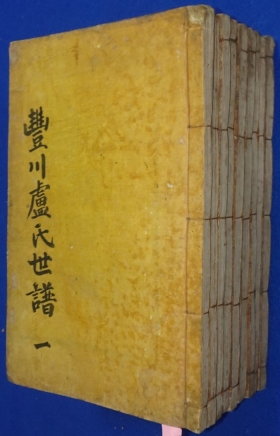 豐川盧氏世譜 一